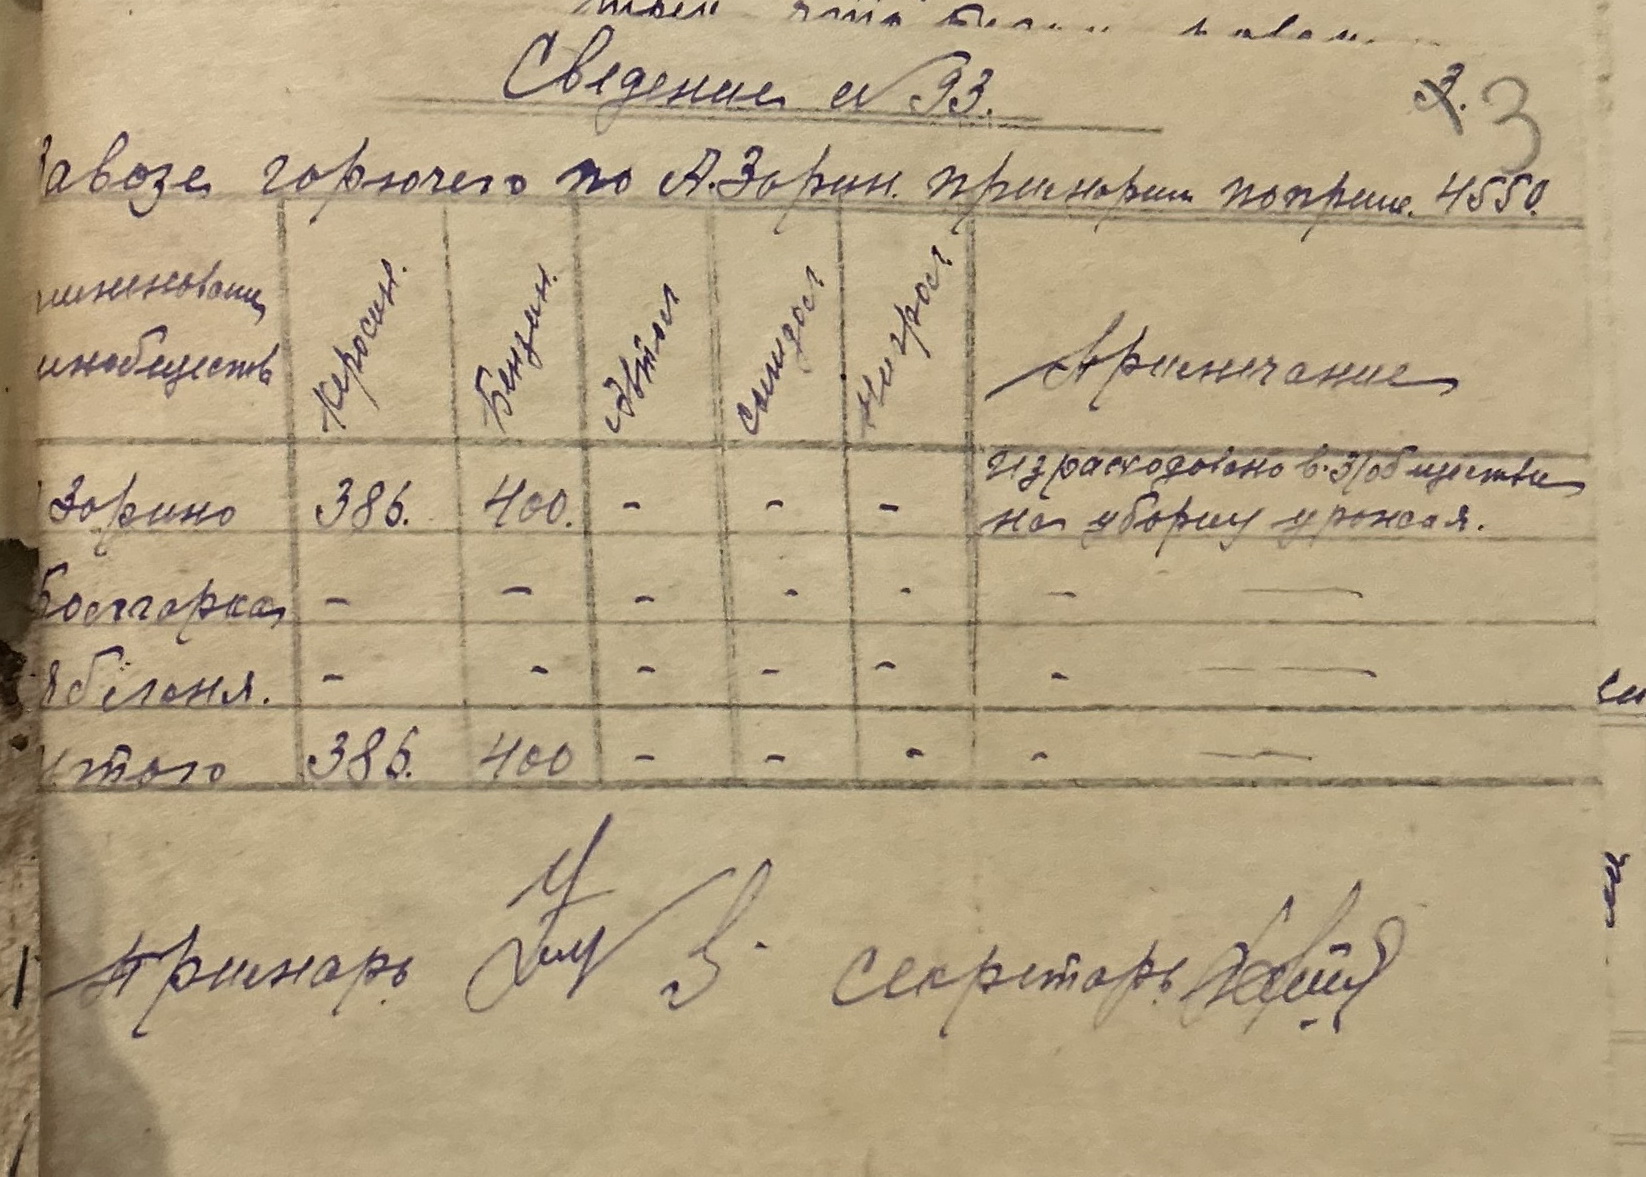 Сведение № 93.
3. 3
Завозе горючего по А.Зорин. примории поприм. 4550.
именовани
инобществ
Керосин.
Бензин.
Автол
Солидол
Нигрол
Примечание
Зорино 386. 400. - - -
Израсходовано в. З/обществе
на уборку урожая.
Болгарка - - - - - - —
ябелоня. - - - - - - —
итого 386. 400 - - - - —
Примарь З.
Секретарь